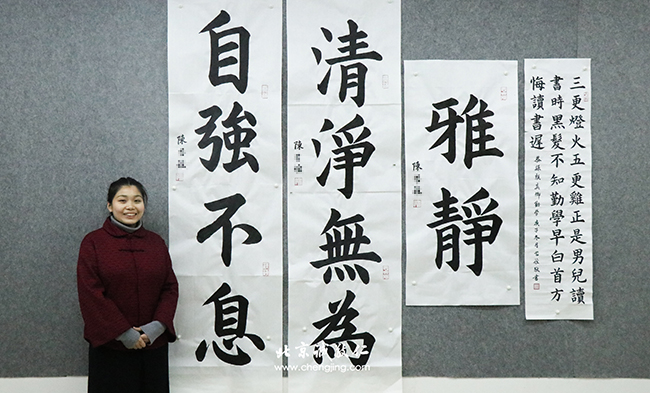 自強不息
清淨無為
雅靜
三更燈火五更雞正是男兒讀
書時黑髮不知勤學早白首方
悔讀書遲
www.chengjing.com